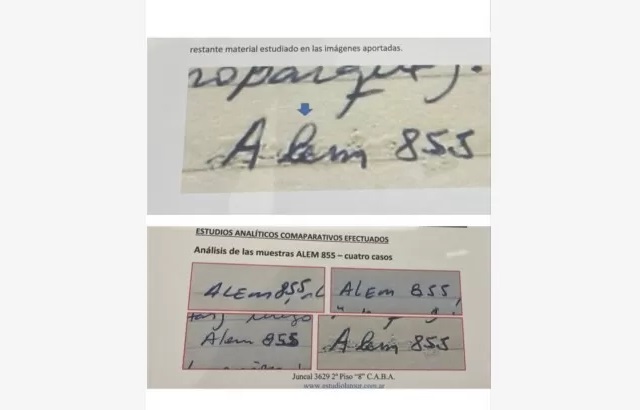 restante material estudiado en las imágenes aportadas.
Alem 855
ESTUDIOS ANALÍTICOS COMAPARATIVOS EFECTUADOS
Análisis de las muestras ALEM 855 – cuatro casos
ALEm 855,
ALEm 855,
Alem 855
Alem 855
Juncal 3629 2º Piso "8" C.A.B.A.